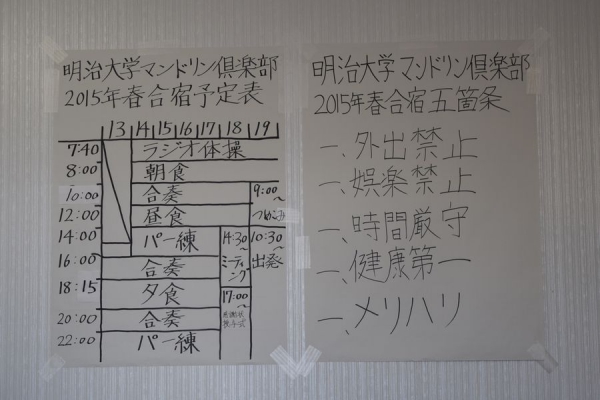 明治大学マンドリン倶楽部
2015年春合宿予定表
13 14 15 16 17 18 19
7:40 ラジオ体操
8:00 朝食
10:00 合奏 9:00~
12:00 昼食 つめこみ
14:00 パー練 14:30~ 10:30~
16:00 合奏 ミーティング 出発
18:15 夕食 17:00~
20:00 合奏
22:00 パー練
明治大学マンドリン倶楽部
2015年春合宿五箇条
一、外出禁止
一、娯楽禁止
一、時間厳守
一、健康第一
一、メリハリ